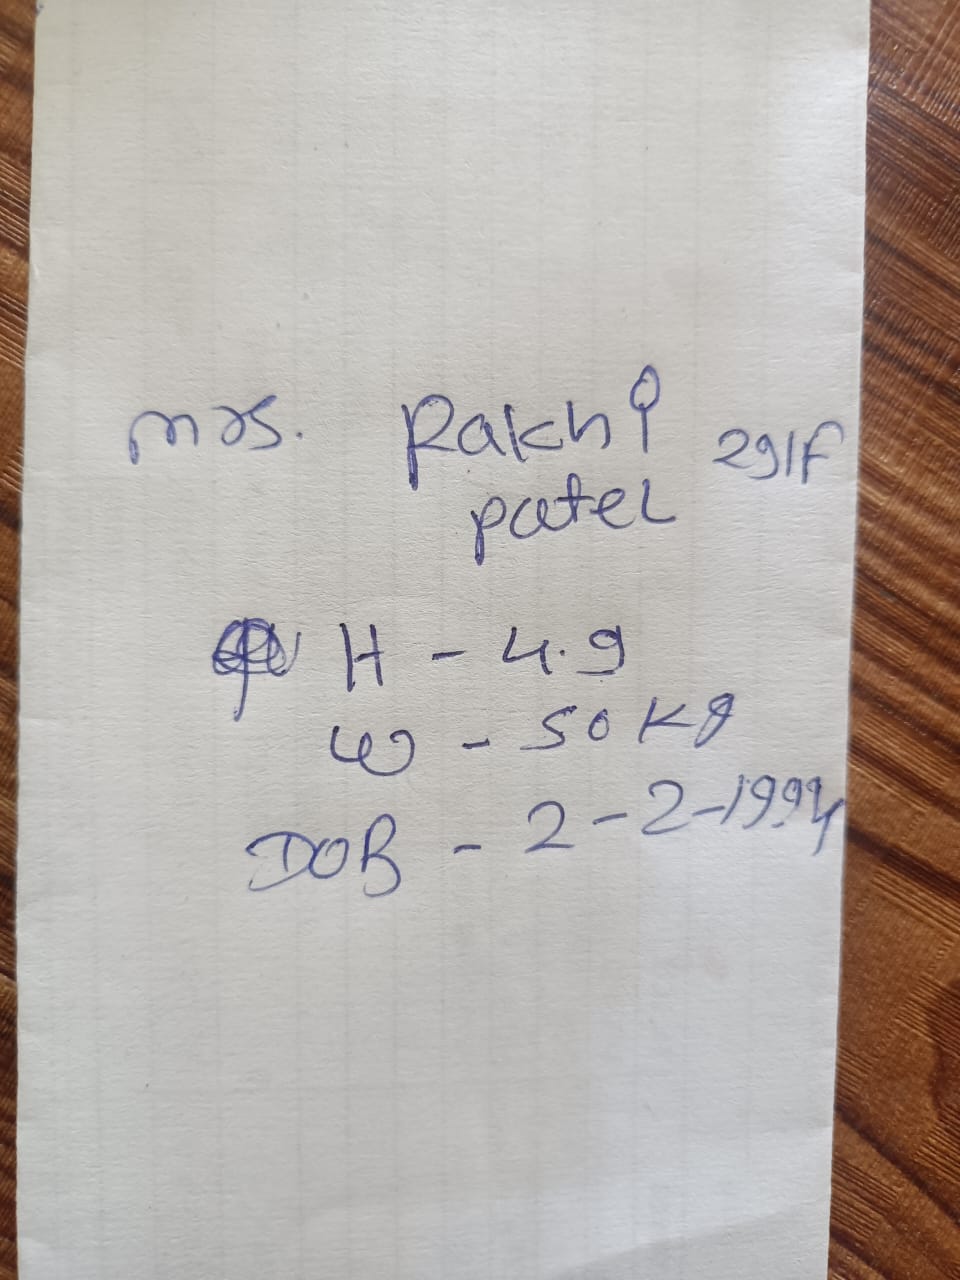 mrs. Rakhi 29/F
patel
H - 4.9
w - 50 kg
DOB - 2-2-1994